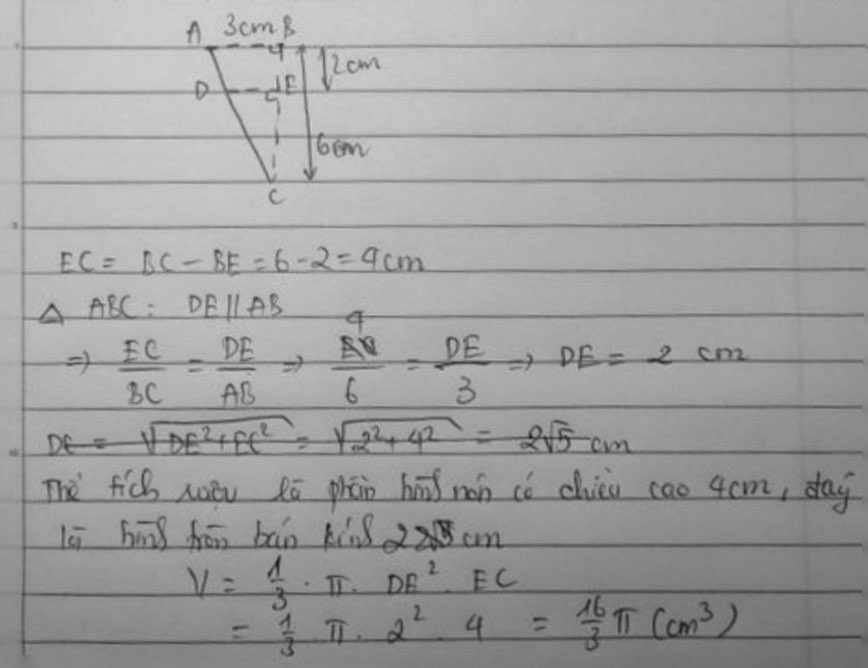 A 3cm B
2cm
D E
6cm
C
EC = BC - BE = 6 - 2 = 4cm
Δ ABC : DE // AB
4
⇒ EC/BC = DE/AB ⇒ /6 = DE/3 ⇒ DE = 2 cm
DC = √DE²+EC² = √2²+4² = 2√5 cm
Thể tích rượu là phần hình nón có chiều cao 4cm, đáy
là hình tròn bán kính 2 cm
V = 1/3 . π . DE² . EC
= 1/3 . π . 2² . 4 = 16/3 π (cm³)